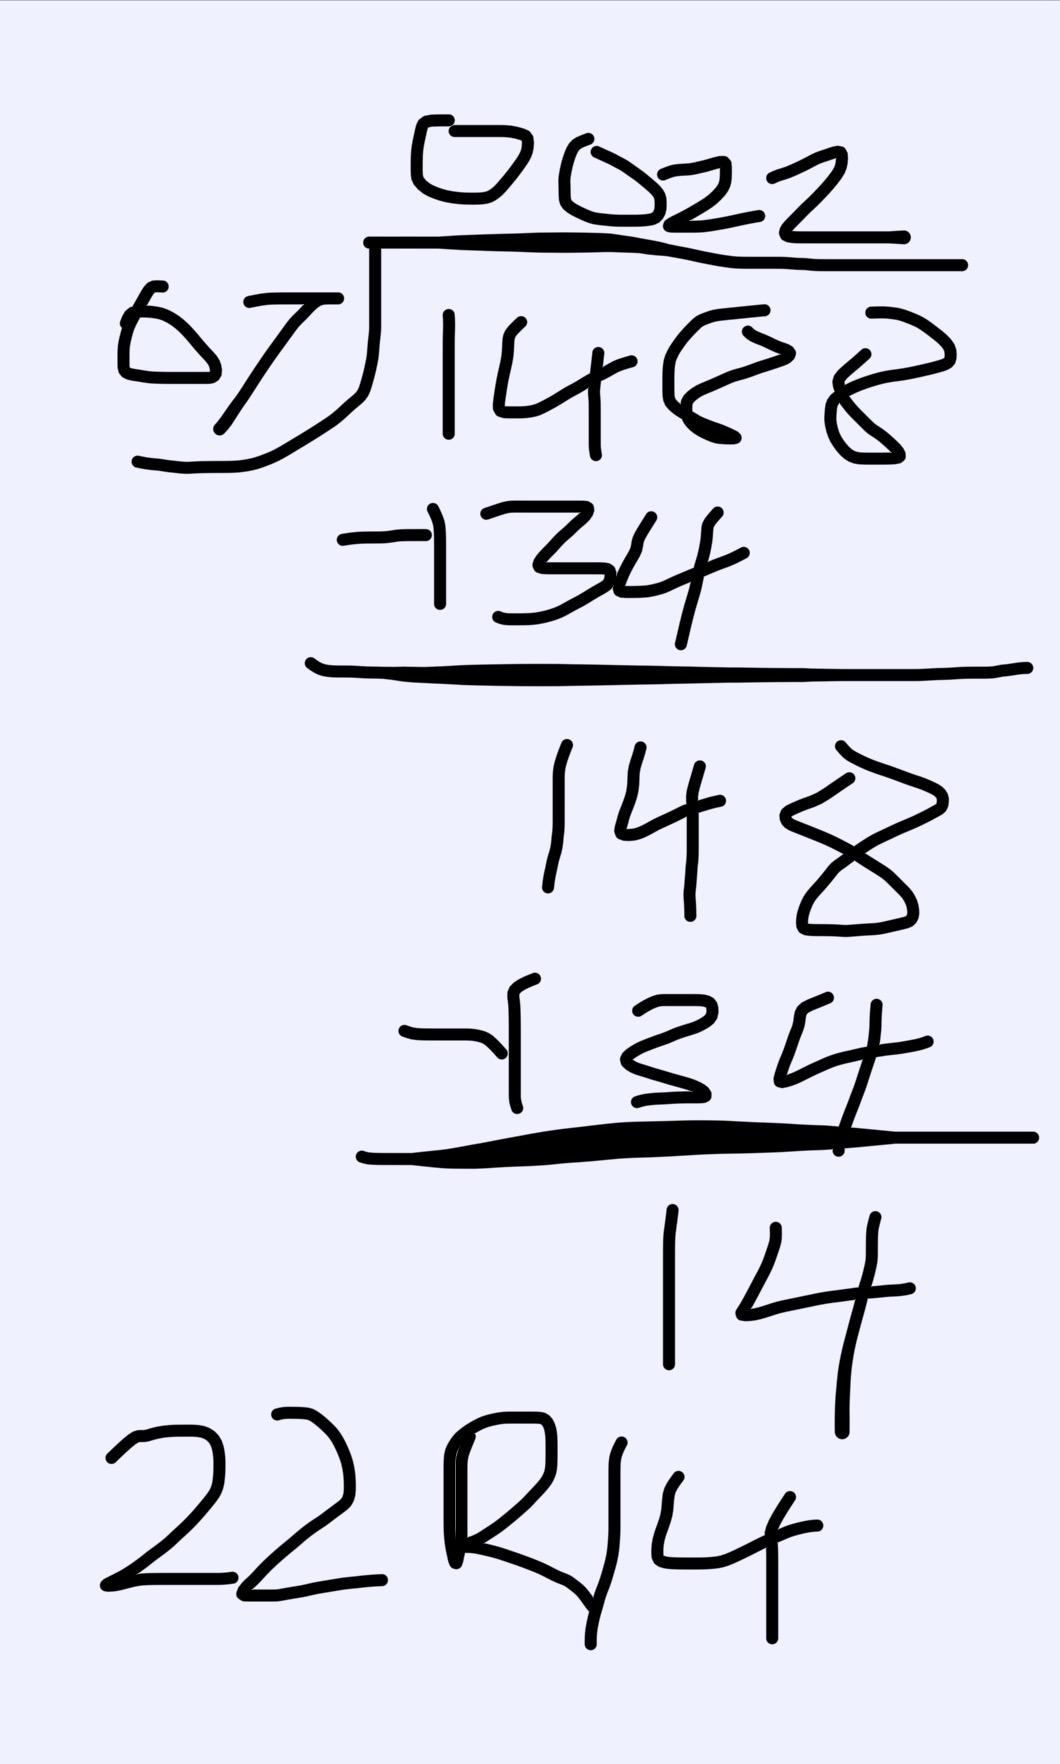 0022
67 1488
-134
148
-134
14
22 R14